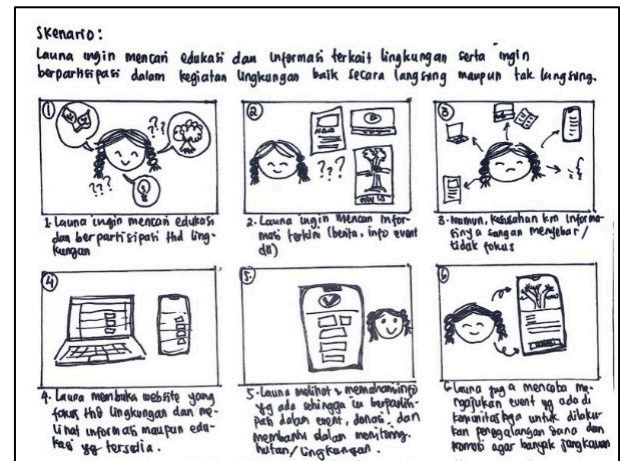 Skenario:
Launa ingin mencari edukasi dan informasi terkait lingkungan serta ingin
berpartisipasi dalam kegiatan lingkungan baik secara langsung maupun tak langsung.
①
???
???
②
???
③
1. Launa ingin mencari edukasi
dan berpartisipasi thd ling-
kungan
2. Launa ingin mencari infor-
masi terkini (berita, info event
dll)
3. Namun, kesusahan krn informa-
sinya sangan menyebar/
tidak fokus
④
⑤
⑥
4. Launa membuka website yang
fokus thd lingkungan dan me-
lihat informasi maupun edu-
kasi yg tersedia.
5. Launa melihat & memahami info
yg ada sehingga ia berpartisi-
pasi dalam event, donasi, dan
membantu dalam monitoring
hutan/lingkungan.
6. Launa juga mencoba me-
ngajukan event yg ada di
komunitasnya untuk dilaku-
kan penggalangan dana dan
promosi agar banyak jangkauan